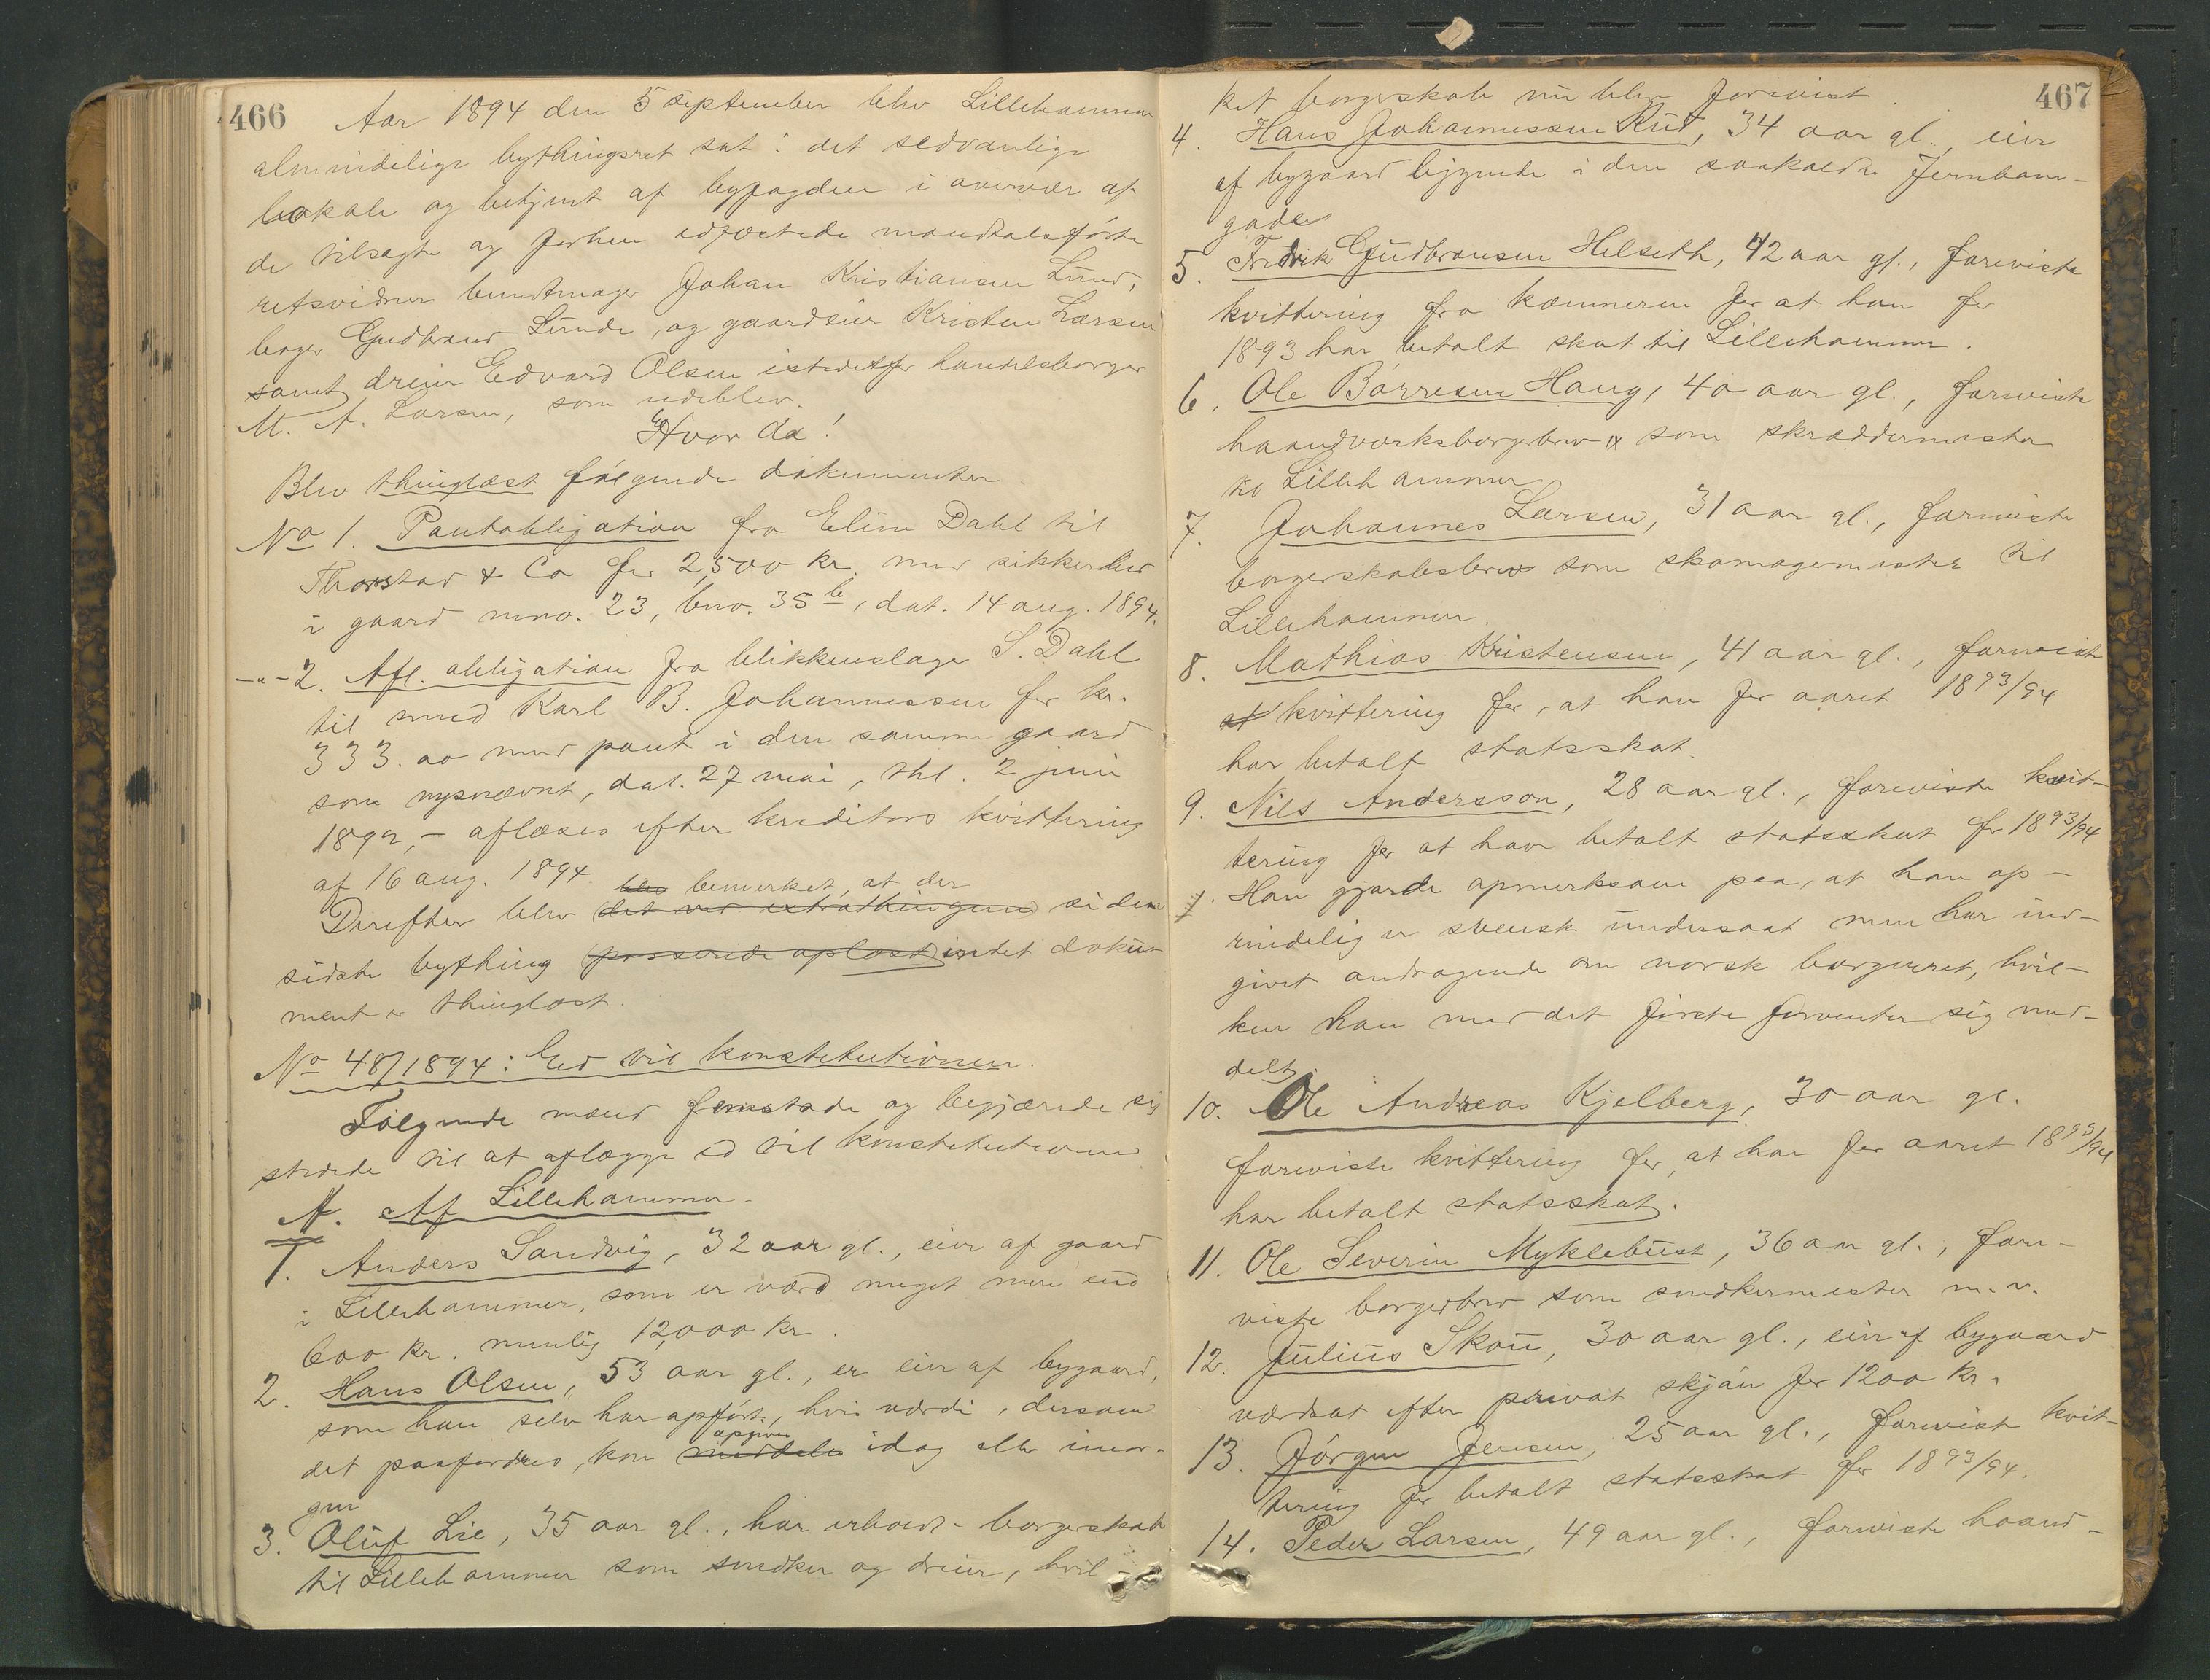 466
Aar 1894 den 5 september blev Lillehammer
almindelige bythingsret sat i det sedvanlige
lokale og betjent af byfogden i overvær af
de tilsagte og forhen edfæstede mandtalsførte
retsvidner buntmager Johan Kristiansen Lund,
bager Gudbrand Lunde, og gaardeier Kristen Larsen
samt dreier Edvard Olsen istedetfor handelsborger
M. A. Larsen, som udeblev.
Hvor da!
Blev thinglæst følgende dokumenter
No 1. Pantobligation fra Eline Dahl til
Thorstad & Co for 2,500 kr. med sikkerhed
i gaard mno. 23, bno. 35 b, dat. 14 aug. 1894.
-"- 2. Afl. obligation fra blikkenslager S. Dahl
til smed Karl B. Johannessen for kr.
333.00 med pant i den samme gaard
som nysnævnt, dat. 27 mai, thl. 2 juni
1892, – aflæses efter kreditors kvittering
af 16 aug. 1894.
blev bemerket, at der
Derefter blev det ved extrathingene siden
sidste bything passerede oplæst intet doku-
ment er thinglæst.
No 48/1894: Ed til konstitutionen.
Følgende mænd fremstode og begjærede sig
stedede til at aflægge ed til konstitutionen
A. Af Lillehammer
1. Anders Sandvig, 32 aar gl., eier af gaard
i Lillehammer, som er værd meget mere end
600 kr. nemlig 12,000 kr.
2. Hans Olsen, 53 aar gl., er eier af bygaard,
som han selv har opført, hvis værdi, dersom
opgives
det paafordres, kan meddeles idag eller imor-
gen
3. Oluf Lie, 35 aar gl., har erholdt borgerskab
til Lillehammer som snedker og dreier, hvil-
467
ket borgerskab nu blev forevist.
4. Hans Johannessen Rud, 34 aar gl., eier
af bygaard liggende i den saakaldte Jernbane-
gade
5. Fredrik Gudbransen Helseth, 42 aar gl., foreviste
kvittering fra kæmneren for at han for
1893 har betalt skat til Lillehammer.
6. Ole Børresen Haug, 40 aar gl., foreviste
haandverksborgerbrev som skræddermester
til Lillehammer
7. Johannes Larsen, 31 aar gl., foreviste
borgerskabsbrev som skomagermester til
Lillehammer.
8. Mathias Kristensen, 41 aar gl., foreviste
at kvittering for, at han for aaret 1893/94
har betalt statsskat.
9. Nils Andersson, 28 aar gl., foreviste kvit-
tering for at have betalt statsskat for 1893/94
Han gjorde opmerksom paa, at han op-
rindelig er svensk undersaat men har ind-
givet andragende om norsk borgerret, hvil-
ken han med det første forventer sig med-
delt.
10. Ole Andreas Kjelberg, 30 aar gl.
foreviste kvittering for, at han for aaret 1893/94
har betalt statsskat.
11. Ole Severin Myklebust, 36 aar gl., fore-
viste borgerbrev som snedkermester m. v.
12. Julius Skou, 30 aar gl., eier af bygaard
værdsat efter privat skjøn for 1200 kr.
13. Jørgen Jensen, 25 aar gl., foreviste kvit-
tering for betalt statsskat for 1893/94.
14. Peder Larsen, 49 aar gl., foreviste haand-